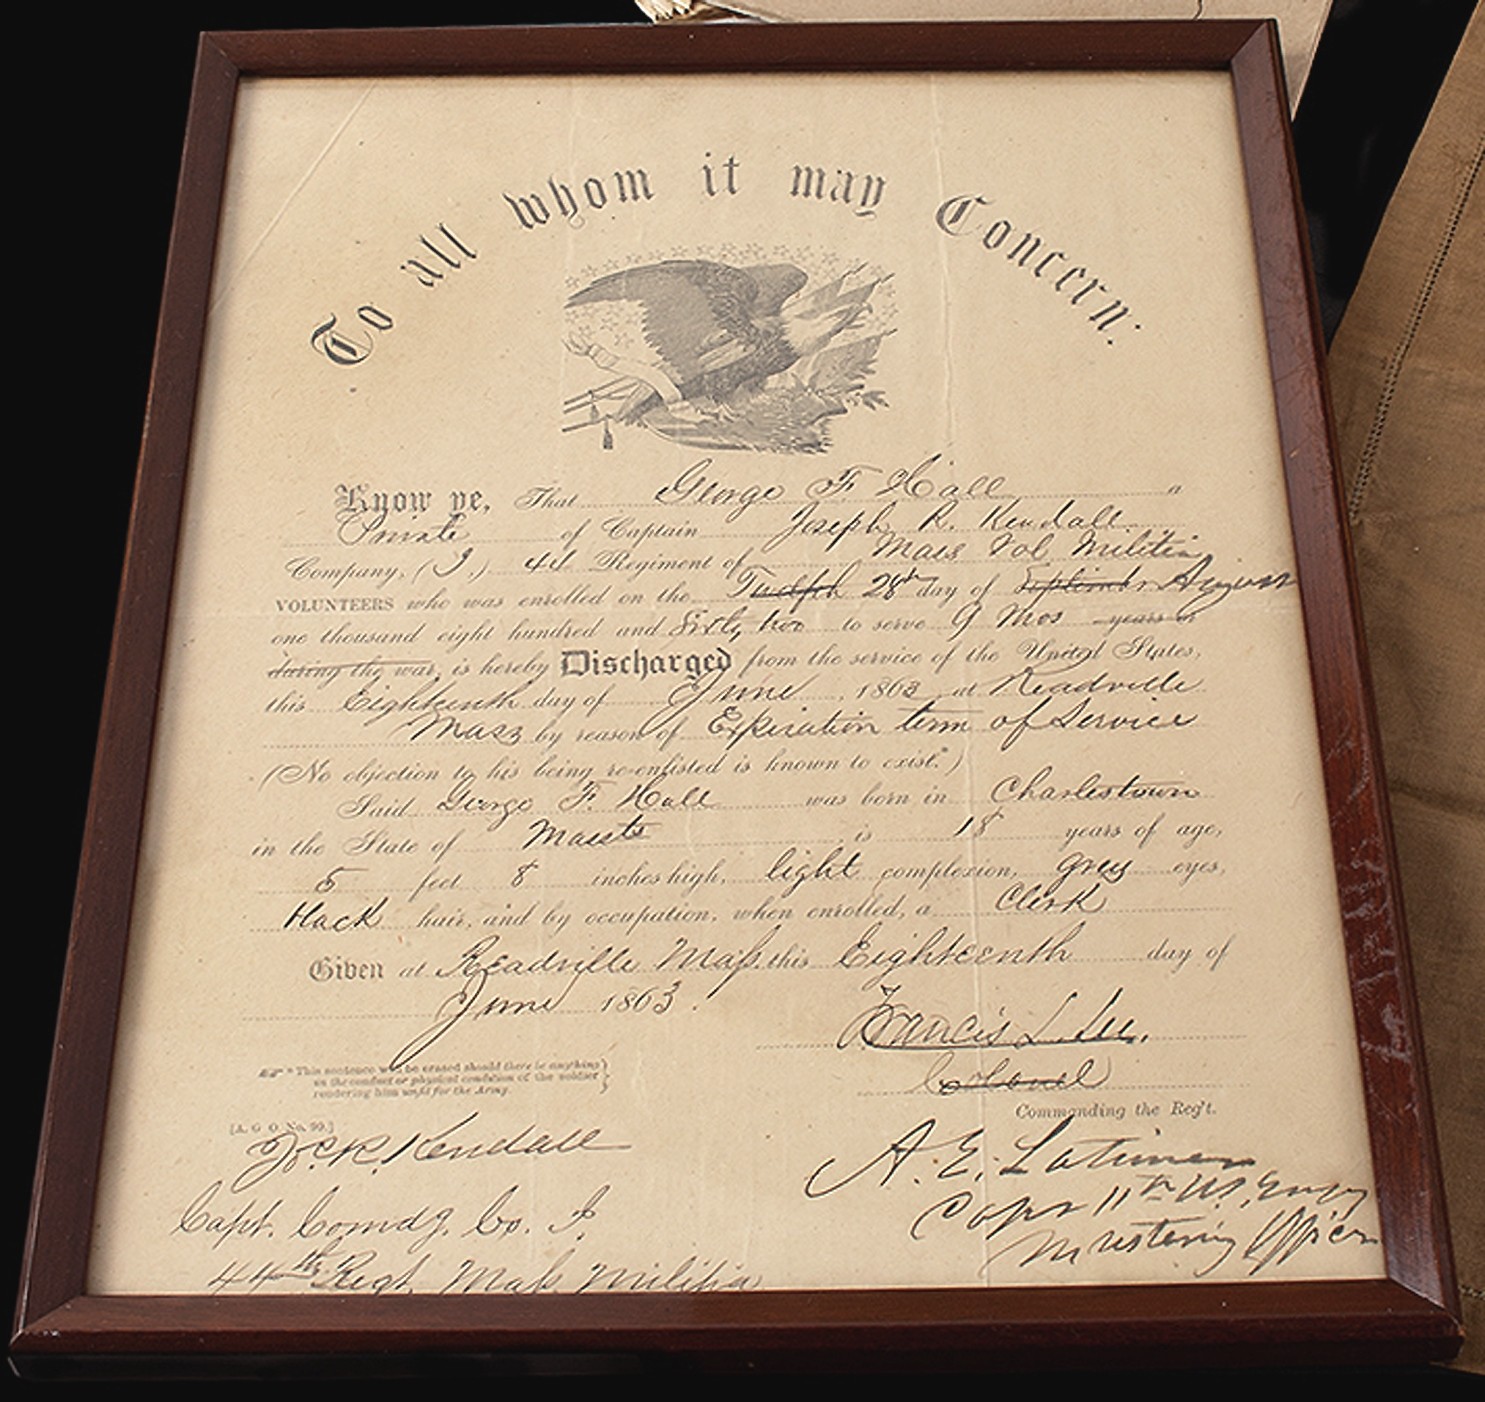 To all whom it may Concern:
Know ye, That George F. Hall a
Private of Captain Joseph R. Kendall
Company, (I.) 44 Regiment of Mass Vol Militia
VOLUNTEERS who was enrolled on the Twelfth 28th day of September August
one thousand eight hundred and Sixty two to serve 9 Mos years or
during the war, is hereby Discharged from the service of the United States,
this Eighteenth day of June, 1863 at Readville
Mass by reason of Expiration term of Service
(No objection to his being re-enlisted is known to exist.*)
Said George F. Hall was born in Charlestown
in the State of is 18 years of age,
5 feet 8 inches high, light complexion, grey eyes,
black hair, and by occupation, when enrolled, a Clerk
Given at Readville Mass. this Eighteenth day of
June 1863.
Francis L. Lee.
Colonel
Commanding the Reg't.
* This sentence will be erased should there be anything
in the conduct or physical condition of the soldier
rendering him unfit for the Army.
[A. G. O. No. 99.]
Jos. R. Kendall
Capt. Comdg. Co. I.
44th Regt. Mass. Militia
A. E. Latimer
Capt 11th U.S. Infy
Mustering Officer